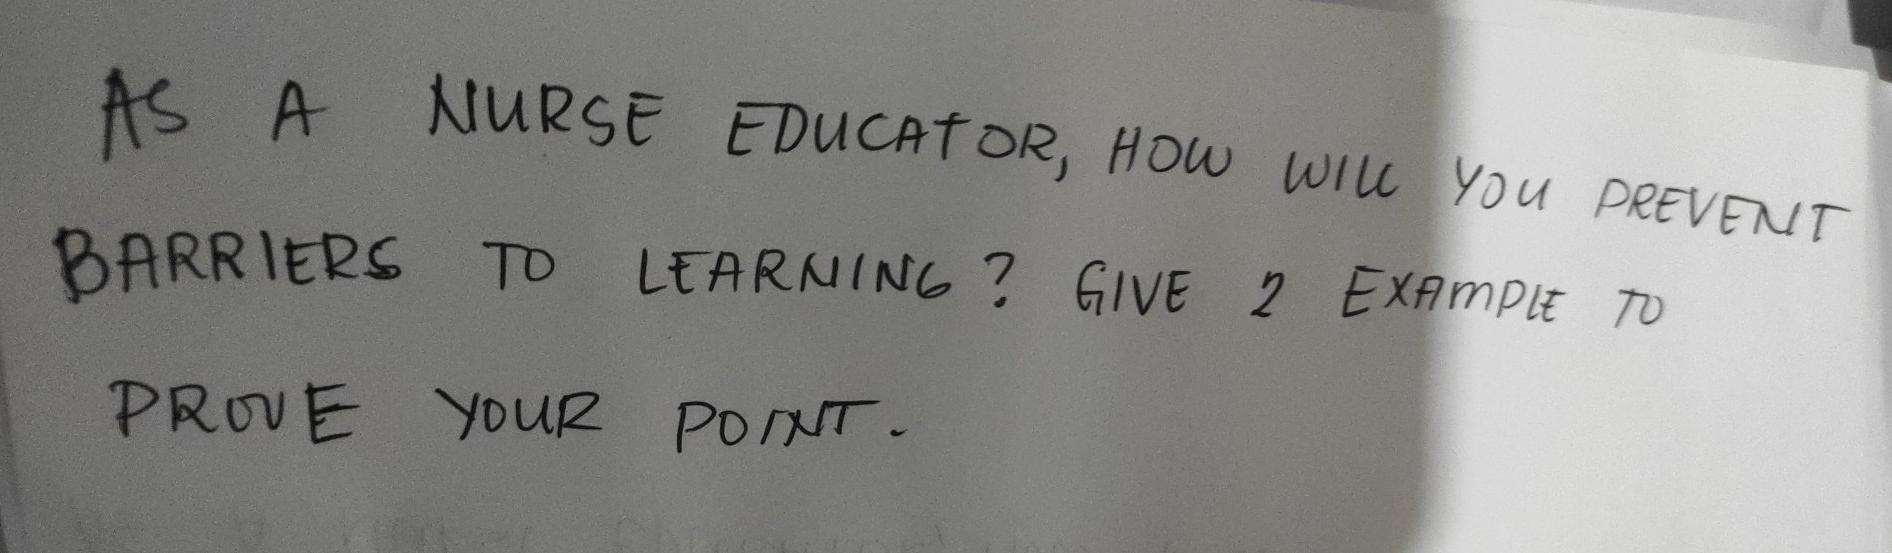 AS A NURSE EDUCATOR, HOW WILL YOU PREVENT
BARRIERS TO LEARNING? GIVE 2 EXAMPLE TO
PROVE YOUR POINT.